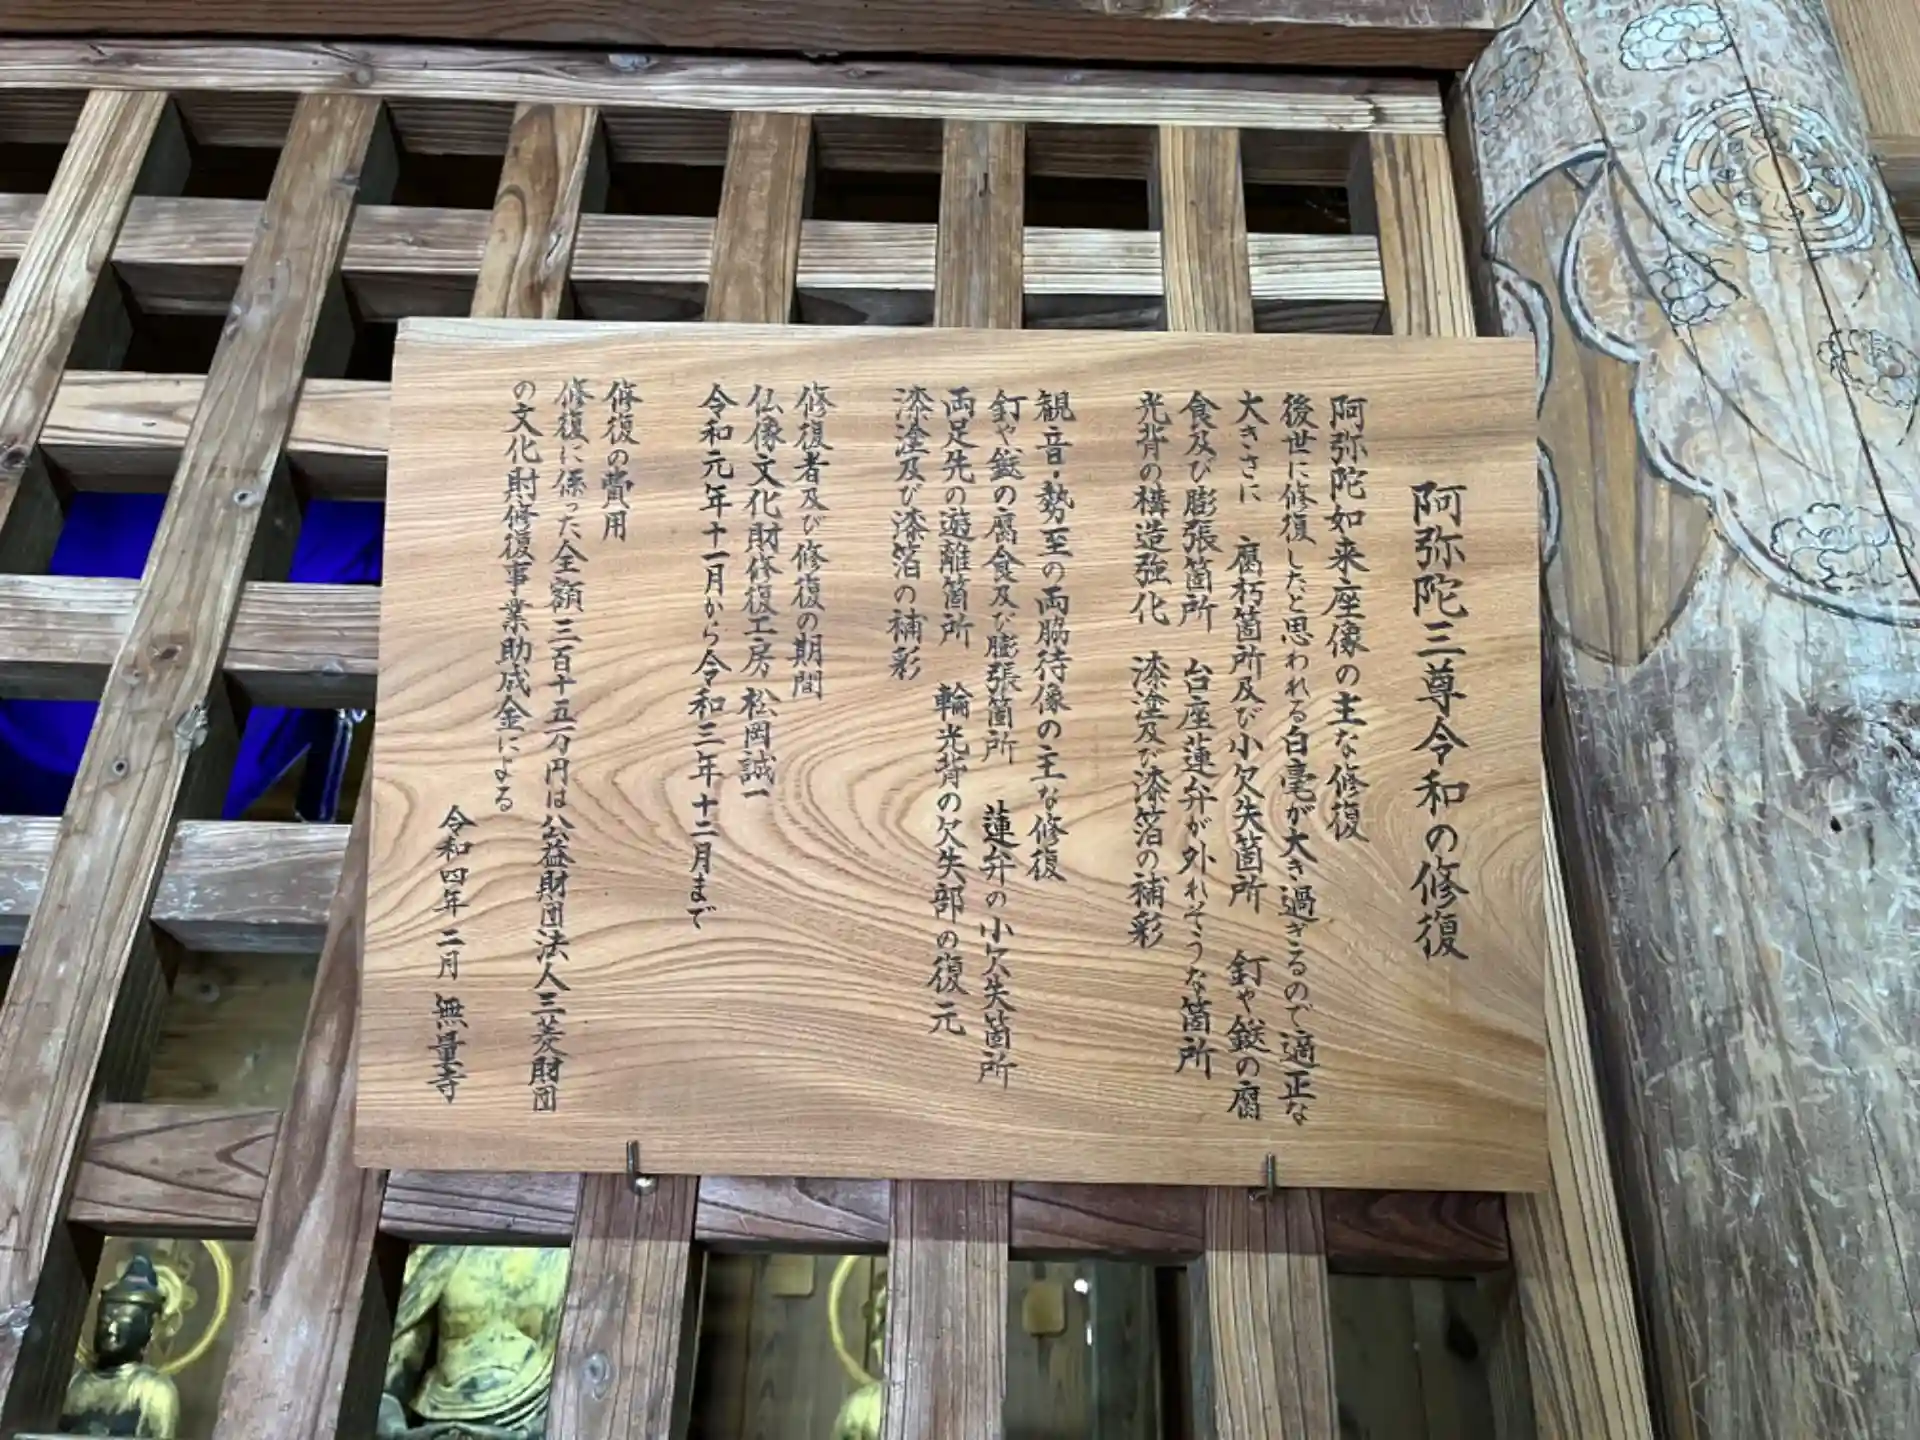 阿弥陀三尊令和の修復
阿弥陀如来座像の主な修復
後世に修復したと思われる白毫が大き過ぎるので適正な
大きさに　腐朽箇所及び小欠失箇所　釘や鎹の腐
食及び膨張箇所　台座蓮弁が外れそうな箇所
光背の構造強化　漆塗及び漆箔の補彩
観音・勢至の両脇待像の主な修復
釘や鎹の腐食及び膨張箇所　蓮弁の小欠失箇所
両足先の遊離箇所　輪光背の欠失部の復元
漆塗及び漆箔の補彩
修復者及び修復の期間
仏像文化財修復工房　松岡誠一
令和元年十一月から令和三年十二月まで
修復の費用
修復に係った全額三百十五万円は公益財団法人三菱財団
の文化財修復事業助成金による
令和四年　二月　無量寺